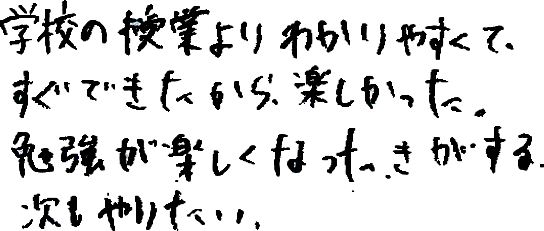 学校の授業よりわかりやすくて、
すぐできたから、楽しかった。
勉強が楽しくなった、きがする。
次もやりたい。